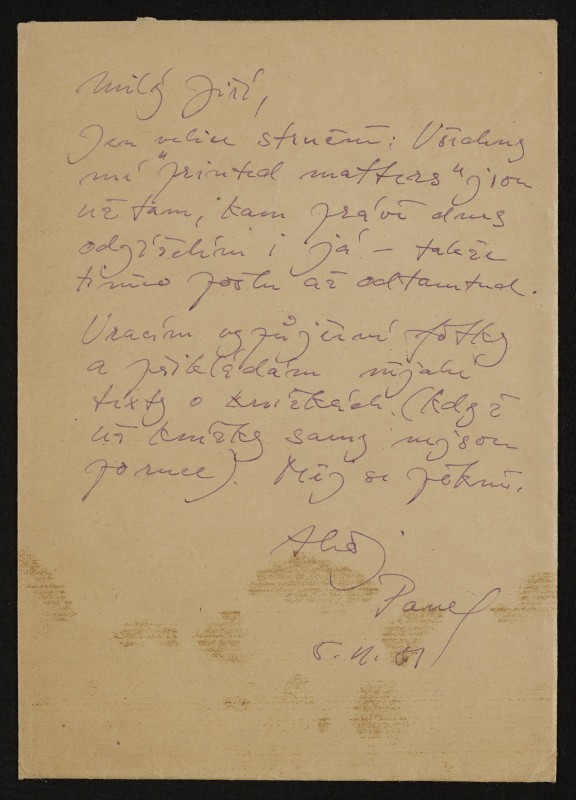 Milý Jiří,
Jen velice stručně: Všechny
mé "printed matters" jsou
už tam, kam právě dnes
odjíždím i já – takže
tiskovo pošlu až odtamtud.
Vracím vypůjčené fotky
a přikládám nějaké
texty o knížkách. (když
už knížky samy nejsou
po ruce). Měj se pěkně.
Ahoj
Pavel